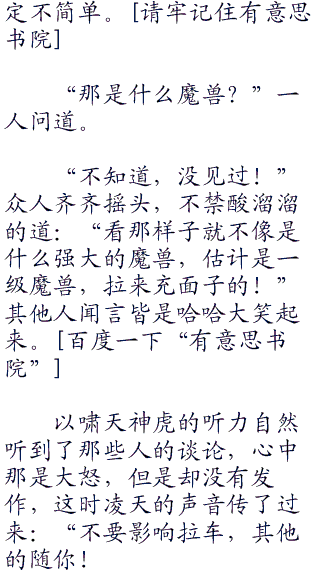 定不简单。[请牢记住有意思
书院]
“那是什么魔兽？”一
人问道。
“不知道，没见过！”
众人齐齐摇头，不禁酸溜溜
的道：“看那样子就不像是
什么强大的魔兽，估计是一
级魔兽，拉来充面子的！”
其他人闻言皆是哈哈大笑起
来。[百度一下“有意思书
院”]
以啸天神虎的听力自然
听到了那些人的谈论，心中
那是大怒，但是却没有发
作，这时凌天的声音传了过
来：“不要影响拉车，其他
的随你！